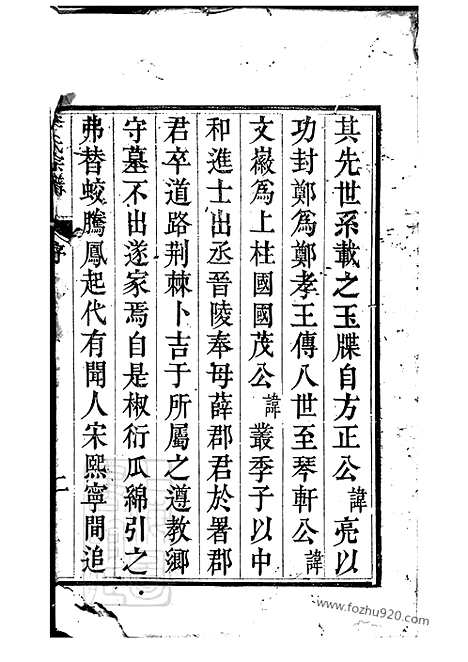 其先世系載之玉牒自方正公諱亮以
功封鄭為鄭孝王傳八世至琴軒公諱
文嶶為上柱國國茂公諱叢季子以中
和進士出丞晉陵奉母薛郡君於署郡
君卒道路荆棘卜吉于所屬之道教鄉
守墓不出遂家焉自是椒衍瓜綿引之
弗替蛟騰鳳起代有聞人宋熙寧間追
李氏宗譜
序
www.fozhu920.com